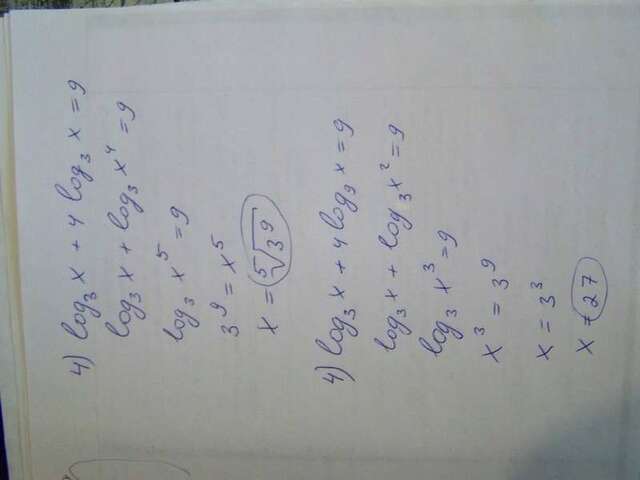 4) log₃ x + 4 log₃ x = 9
log₃ x + log₃ x⁴ = 9
log₃ x⁵ = 9
3⁹ = x⁵
x = ⁵√3⁹
4) log₃ x + 4 log₉ x = 9
log₃ x + log₃ x² = 9
log₃ x³ = 9
x³ = 3⁹
x = 3³
x = 27